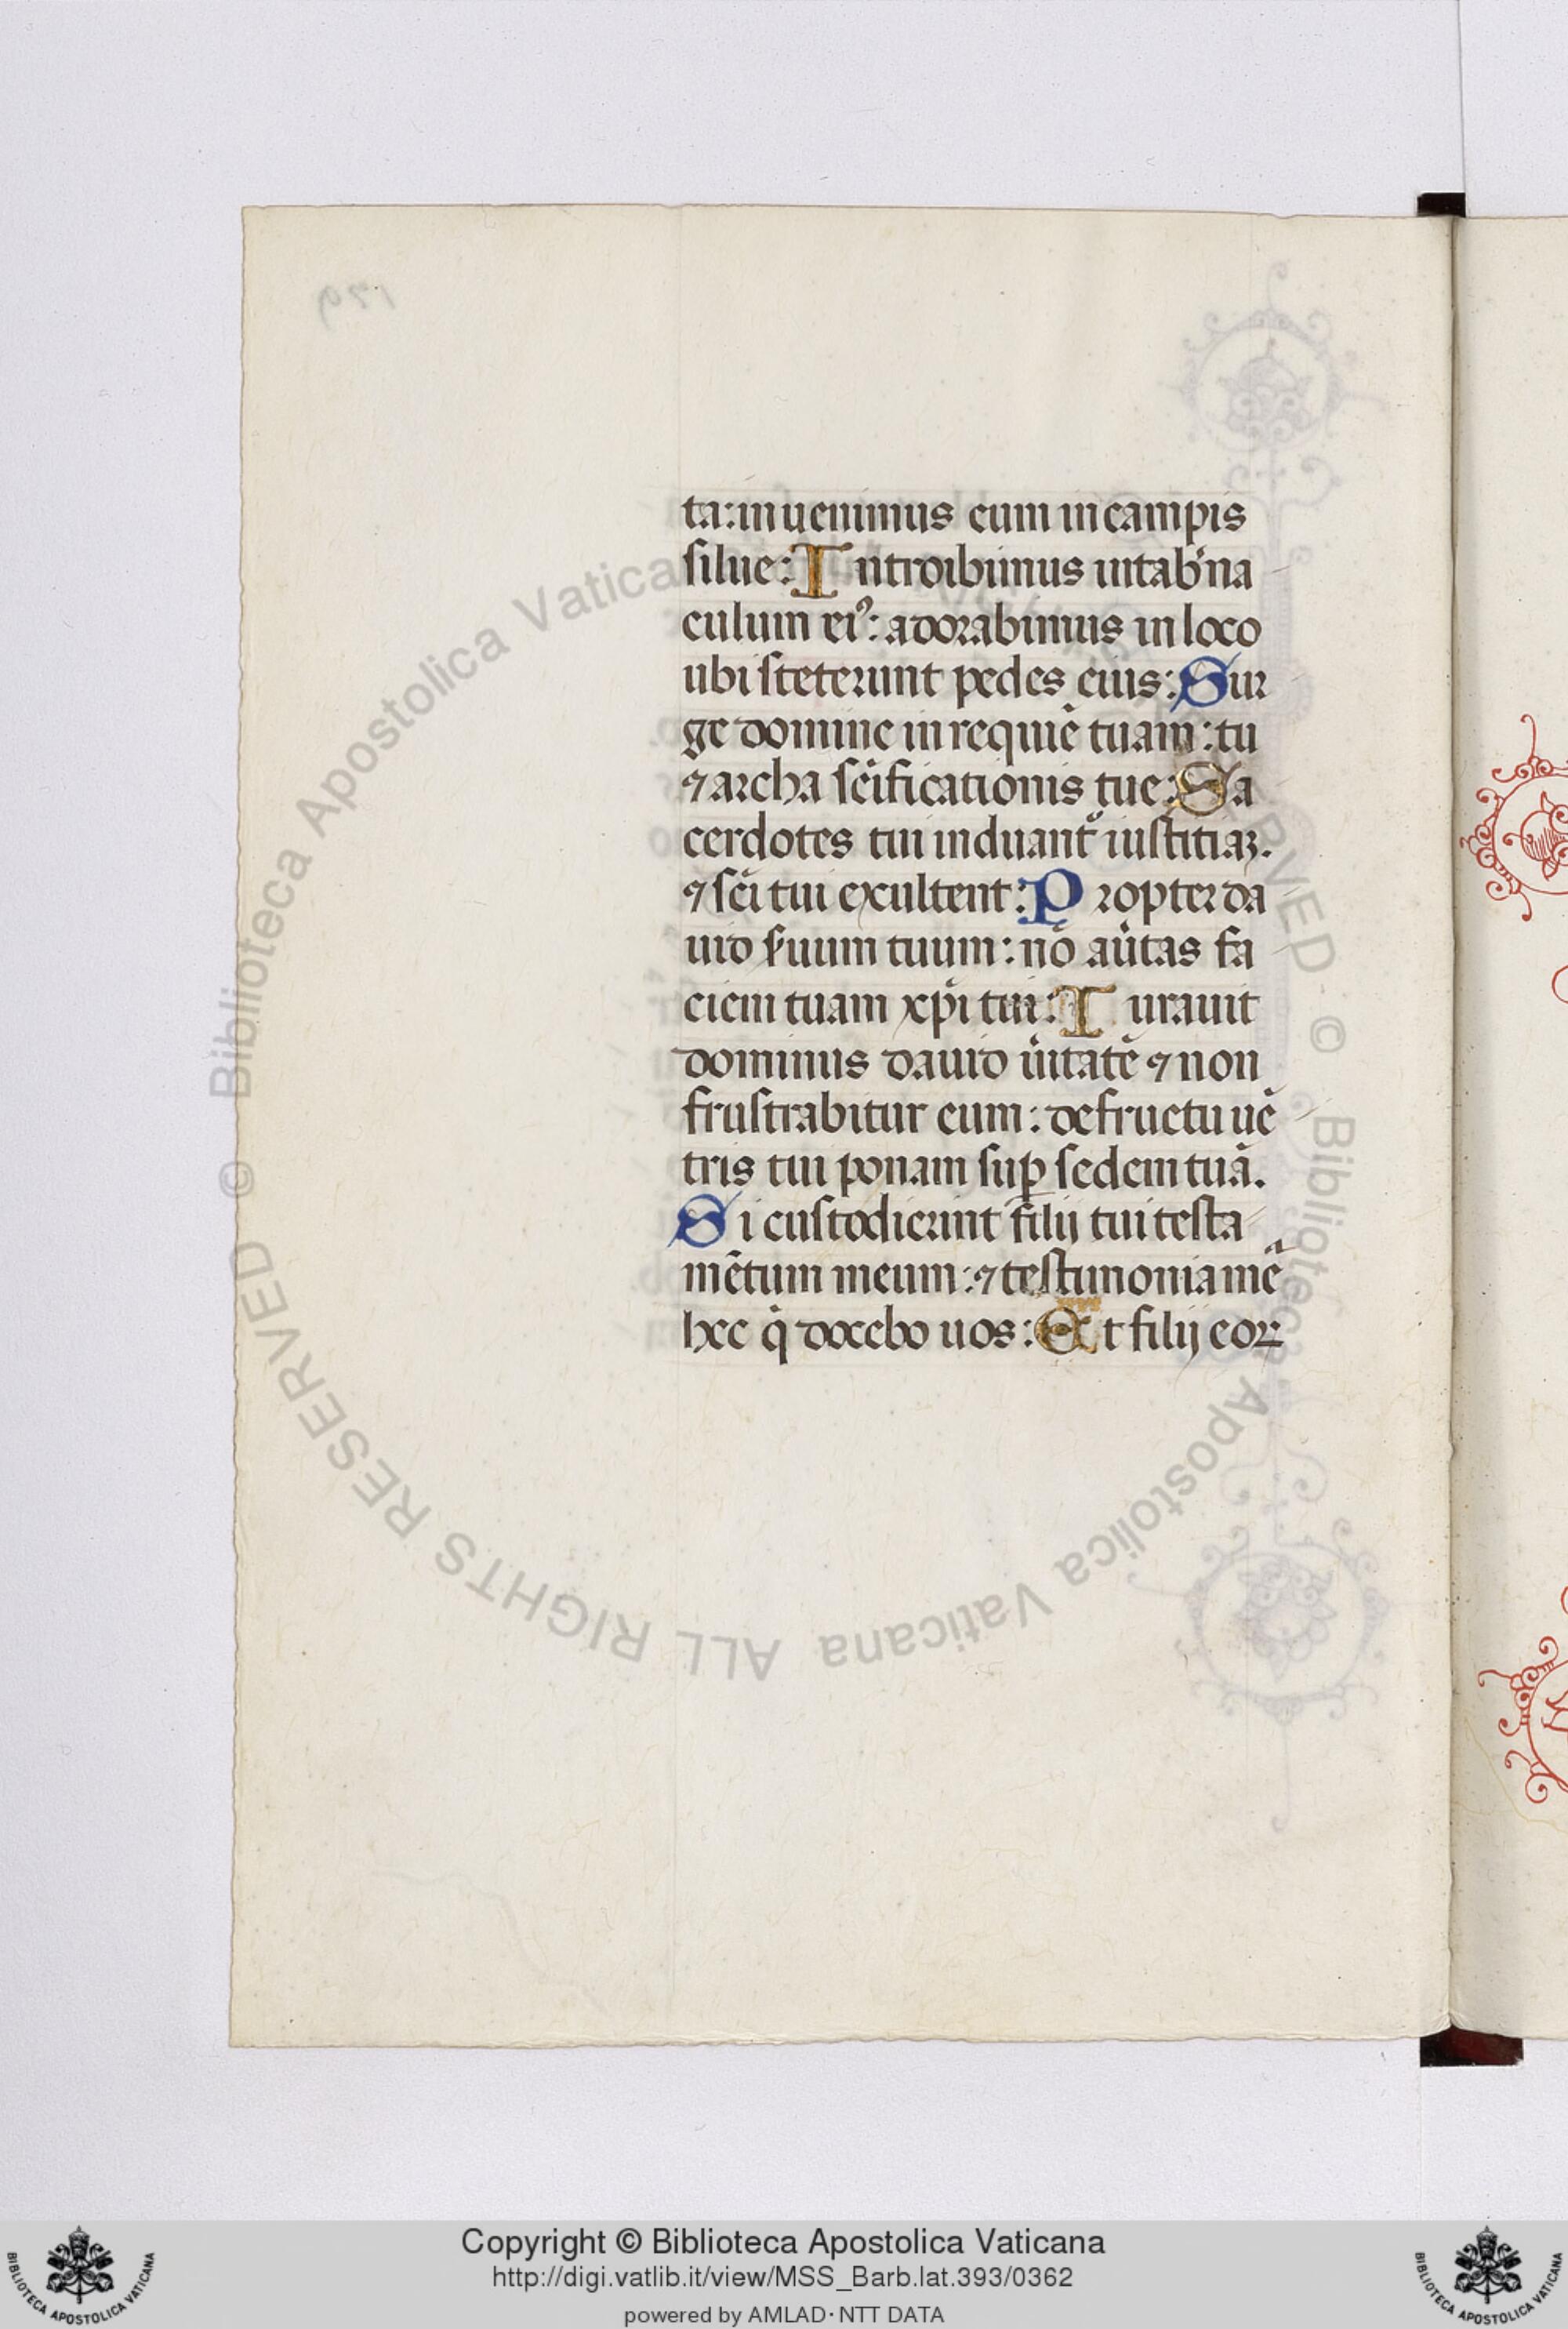 ta: inuenimus eum in campis
silue: Introibimus in tab'na
culum eiꝰ: adorabimus in loco
ubi steterunt pedes eius: Sur
ge domine in requiē tuam: tu
⁊ archa scīficationis tue: Sa
cerdotes tui induant᷑ iustitiaꝫ.
⁊ scī tui exultent: Propter da
uid s'uum tuum: nō au'tas fa
ciem tuam xp̄i tui: Iurauit
dominus dauid u'itatē ⁊ non
frustrabitur eum: de fructu uē
tris tui ponam suꝑ sedem tuā.
Si custodierint filij tui testa
mētum meum: ⁊ testimonia mēᵃ
hec q̄ docebo uos: Et filij eoꝝ
© Biblioteca Apostolica Vaticana ALL RIGHTS RESERVED
Copyright © Biblioteca Apostolica Vaticana
http://digi.vatlib.it/view/MSS_Barb.lat.393/0362
powered by AMLAD·NTT DATA
BIBLIOTECA APOSTOLICA VATICANA
BIBLIOTECA APOSTOLICA VATICANA